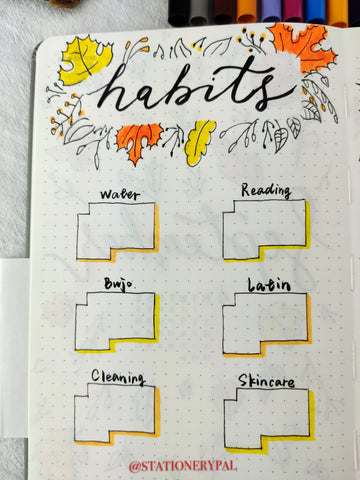 habits
Water
Reading
Bujo.
Latin
Cleaning
Skincare
@STATIONERYPAL